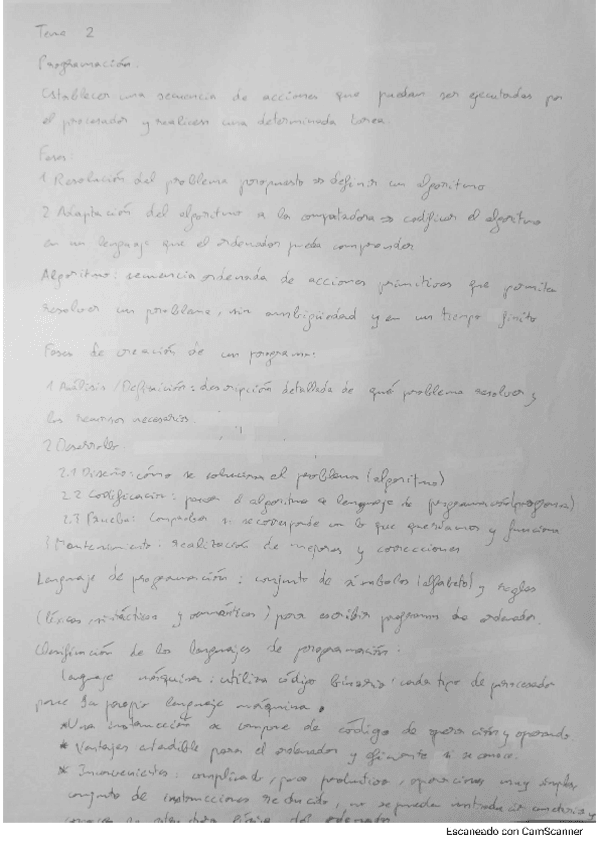 Tema 2
Programación.
Establecer una secuencia de acciones que puedan ser ejecutadas por
el procesador y realicen una determinada tarea.
Fases:
1 Resolución del problema propuesto => definir un algoritmo
2 Adaptación del algoritmo a la computadora => codificar el algoritmo
en un lenguaje que el ordenador pueda comprender
Algoritmo: secuencia ordenada de acciones primitivas que permita
resolver un problema, sin ambigüedad y en un tiempo finito
Fases de creación de un programa:
1 Análisis / Definición: descripción detallada de qué problema resolver y
los recursos necesarios.
2 Desarrollo
2.1 Diseño: cómo se soluciona el problema (algoritmo)
2.2 Codificación: pasar el algoritmo a lenguaje de programación (programa)
2.3 Prueba: comprobar si se corresponde con lo que queríamos y funciona
3 Mantenimiento: realización de mejoras y correcciones
Lenguaje de programación: conjunto de símbolos (alfabeto) y reglas
(léxicas, sintácticas y semánticas) para escribir programas de ordenador.
Clasificación de los lenguajes de programación:
Lenguaje máquina: utiliza código binario, cada tipo de procesador
posee su propio lenguaje máquina.
* Una instrucción se compone de código de operación y operando
* Ventajas: entendible para el ordenador y eficiente si se conoce.
* Inconvenientes: complicado, poco productivo, operaciones muy simples,
conjunto de instrucciones reducido, no se pueden introducir
conocer la estructura física del ordenador
Escaneado con CamScanner